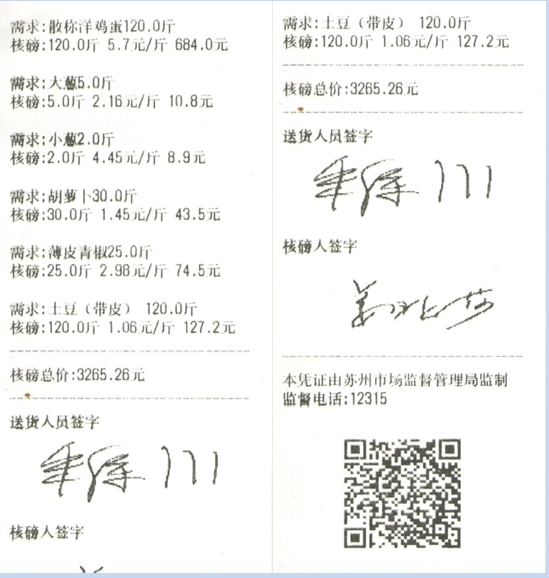 需求:散称洋鸡蛋120.0斤
核磅:120.0斤 5.7元/斤 684.0元
需求:大葱5.0斤
核磅:5.0斤 2.16元/斤 10.8元
需求:小葱2.0斤
核磅:2.0斤 4.45元/斤 8.9元
需求:胡萝卜30.0斤
核磅:30.0斤 1.45元/斤 43.5元
需求:薄皮青椒25.0斤
核磅:25.0斤 2.98元/斤 74.5元
需求:土豆（带皮） 120.0斤
核磅:120.0斤 1.06元/斤 127.2元
核磅总价:3265.26元
送货人员签字
核磅人签字
需求:土豆（带皮） 120.0斤
核磅:120.0斤 1.06元/斤 127.2元
核磅总价:3265.26元
送货人员签字
核磅人签字
本凭证由苏州市场监督管理局监制
监督电话:12315